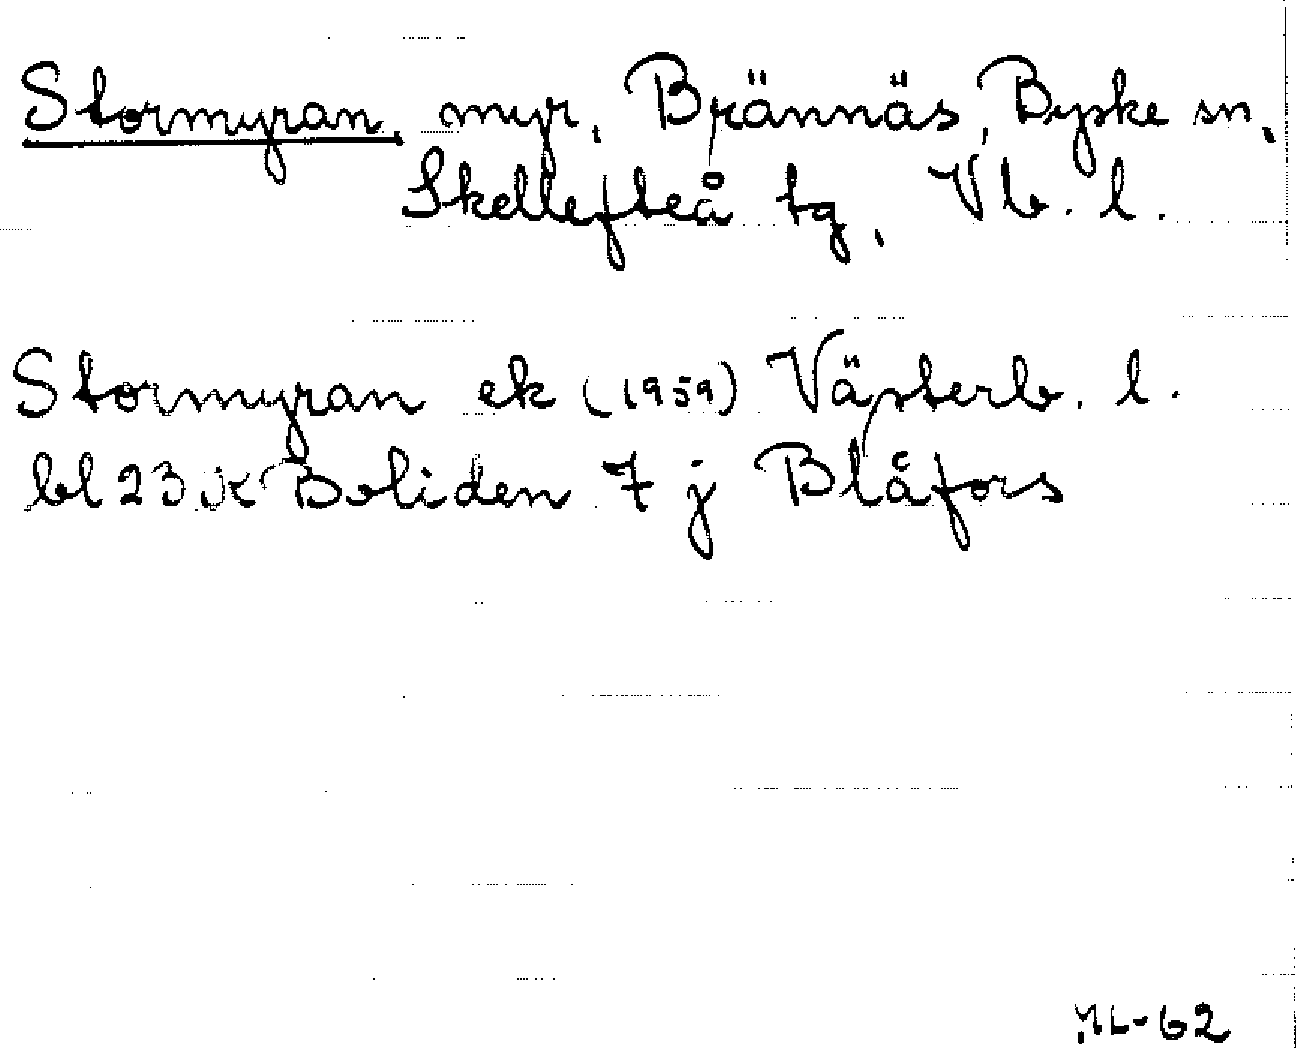 Stormyran, myr, Brännäs, Byske sn,
Skellefteå tg, Vb. l.
Stormyran ek (1959) Västerb. l.
bl 23 K Boliden 7 j Blåfors
ML-62